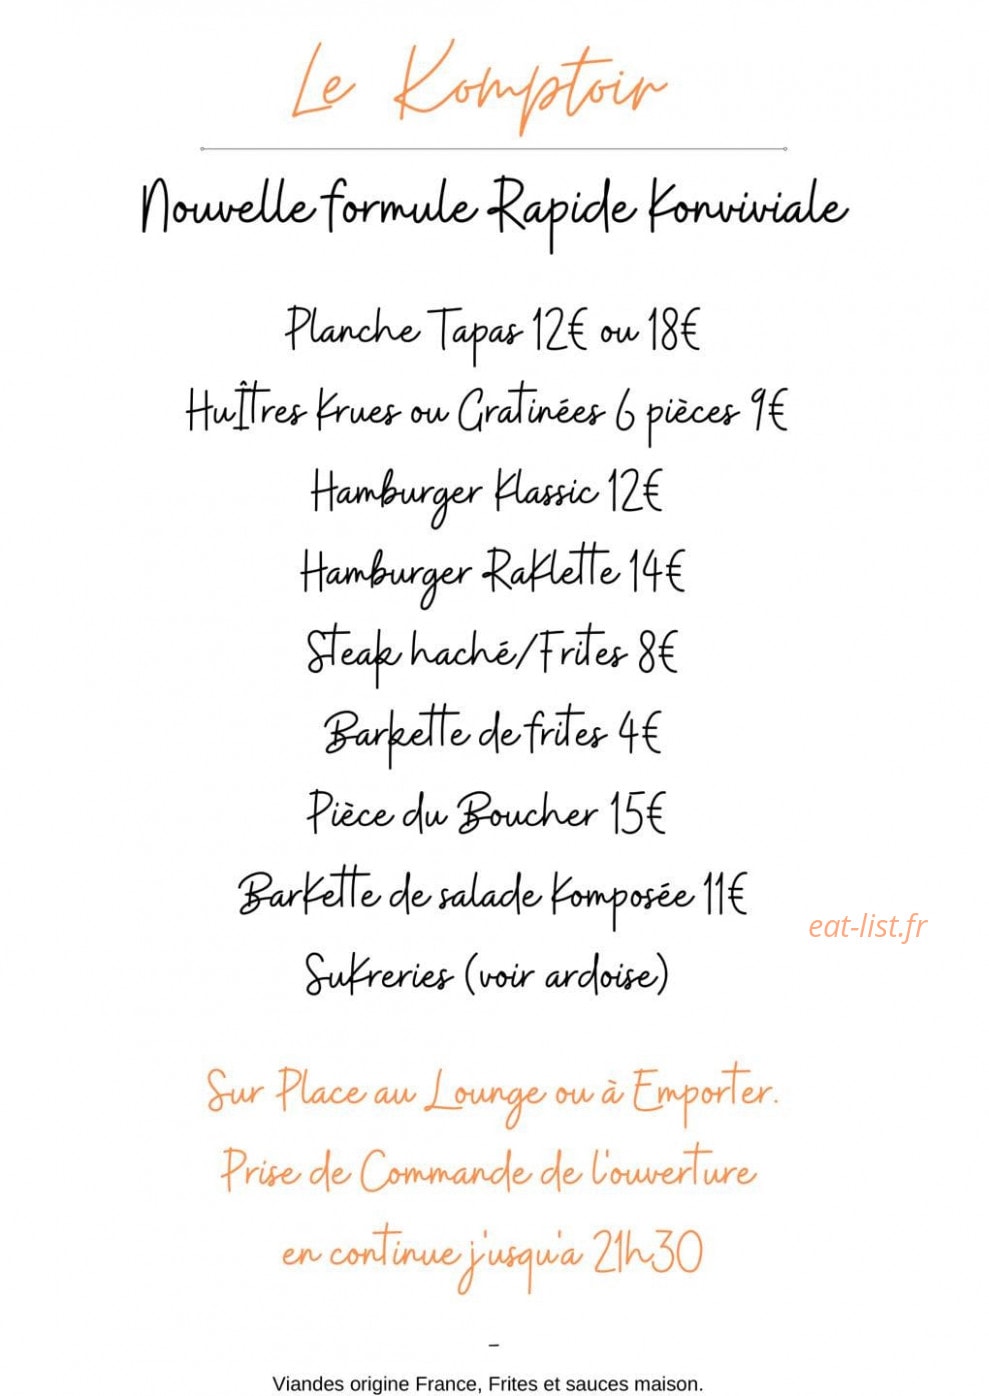 Le Komptoir
Nouvelle formule Rapide Konviviale
Planche Tapas 12€ ou 18€
HuÎtres Krues ou Gratinées 6 pièces 9€
Hamburger Klassic 12€
Hamburger RaKlette 14€
Steak haché/Frites 8€
Barkette de frites 4€
Pièce du Boucher 15€
BarKette de salade Komposée 11€
eat-list.fr
SuKreries (voir ardoise)
Sur Place au Lounge ou à Emporter.
Prise de Commande de l'ouverture
en continue j'usqu'a 21h30
–
Viandes origine France, Frites et sauces maison.